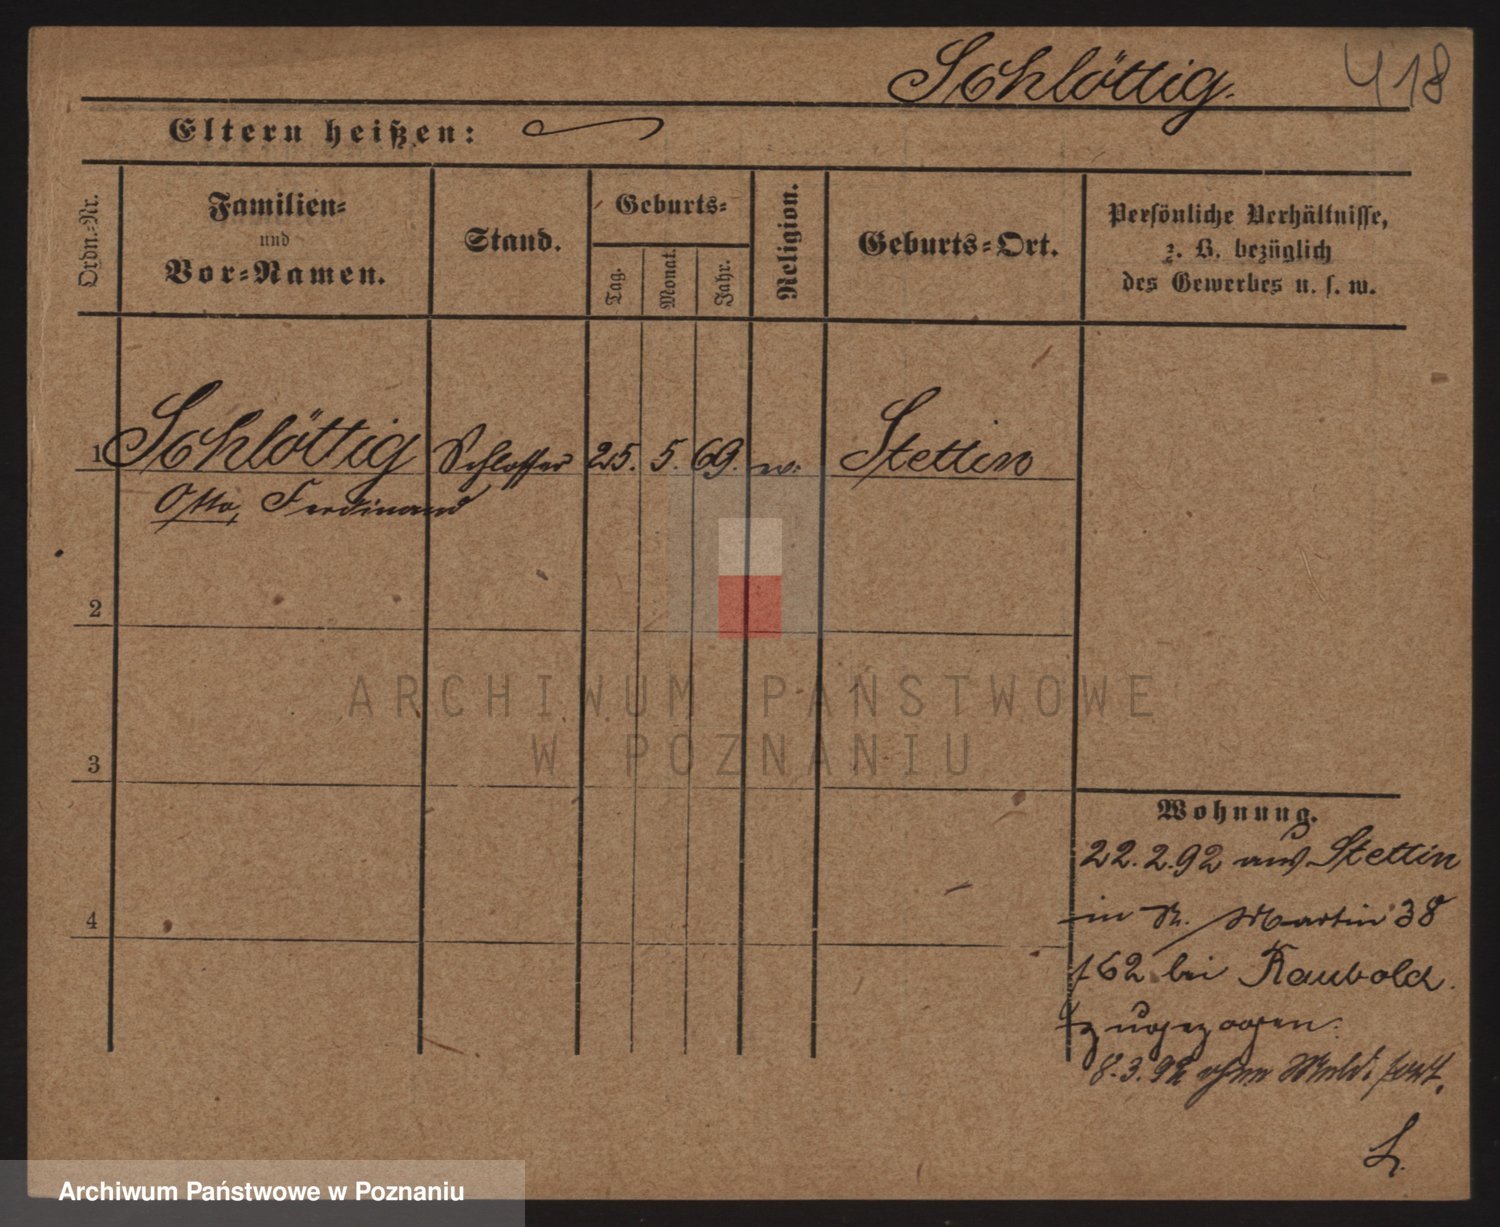 Schlöttig.
418
Eltern heißen:
Ordn.-Nr.
Familien-
und
Vor-Namen.
Stand.
Geburts-
Tag.
Monat.
Jahr.
Religion.
Geburts-Ort.
Persönliche Verhältnisse,
z. B. bezüglich
des Gewerbes u. s. w.
1 Schlöttig Schlosser 25. 5. 69. Stettin
Otto, Ferdinand
2
3
4
ARCHIWUM PAŃSTWOWE
W POZNANIU
Wohnung.
22.2.92 aus Stettin
in St. Martin 38
162 bei Raubold.
zugezogen.
8.3.92 ohne Meld. fort.
L.
Archiwum Państwowe w Poznaniu